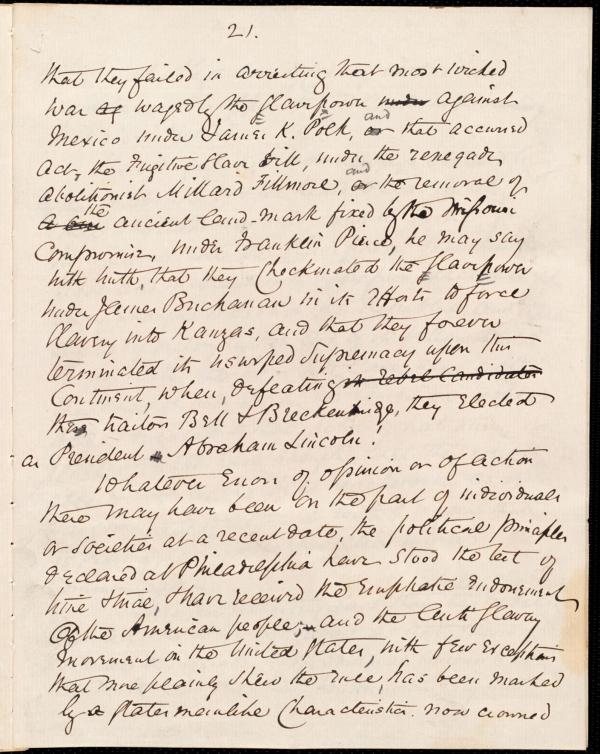 21.
that they failed in arresting that most wicked
war of waged by the slave power under against
Mexico under James K. Polk, or and that accursed
act, the Fugitive Slave bill, under the renegade
abolitionist Millard Fillmore, or and the removal of
the ancient land-mark fixed by the Missouri
Compromise, under Franklin Pierce, he may say
with truth, that they Checkmated the slave power
under James Buchanan in its efforts to force
Slavery into Kanzas, and that they forever
terminated its usurped Supremacy upon this
Continent, when, defeating its rebel Candidates
the traitors Bell & Breckenbridge, they Elected
as President Abraham Lincoln!
Whatever Errors of opinion or of action
there may have been on the part of individuals
or societies at a recent date, the political principles
declared at Philadelphia have stood the test of
time & have received the Emphatic Endorsement
of the American people, and the Anti Slavery
movement in the United States, with few exceptions
that more plainly shew the rule, has been marked
by a statesmanlike Characteristic now crowned